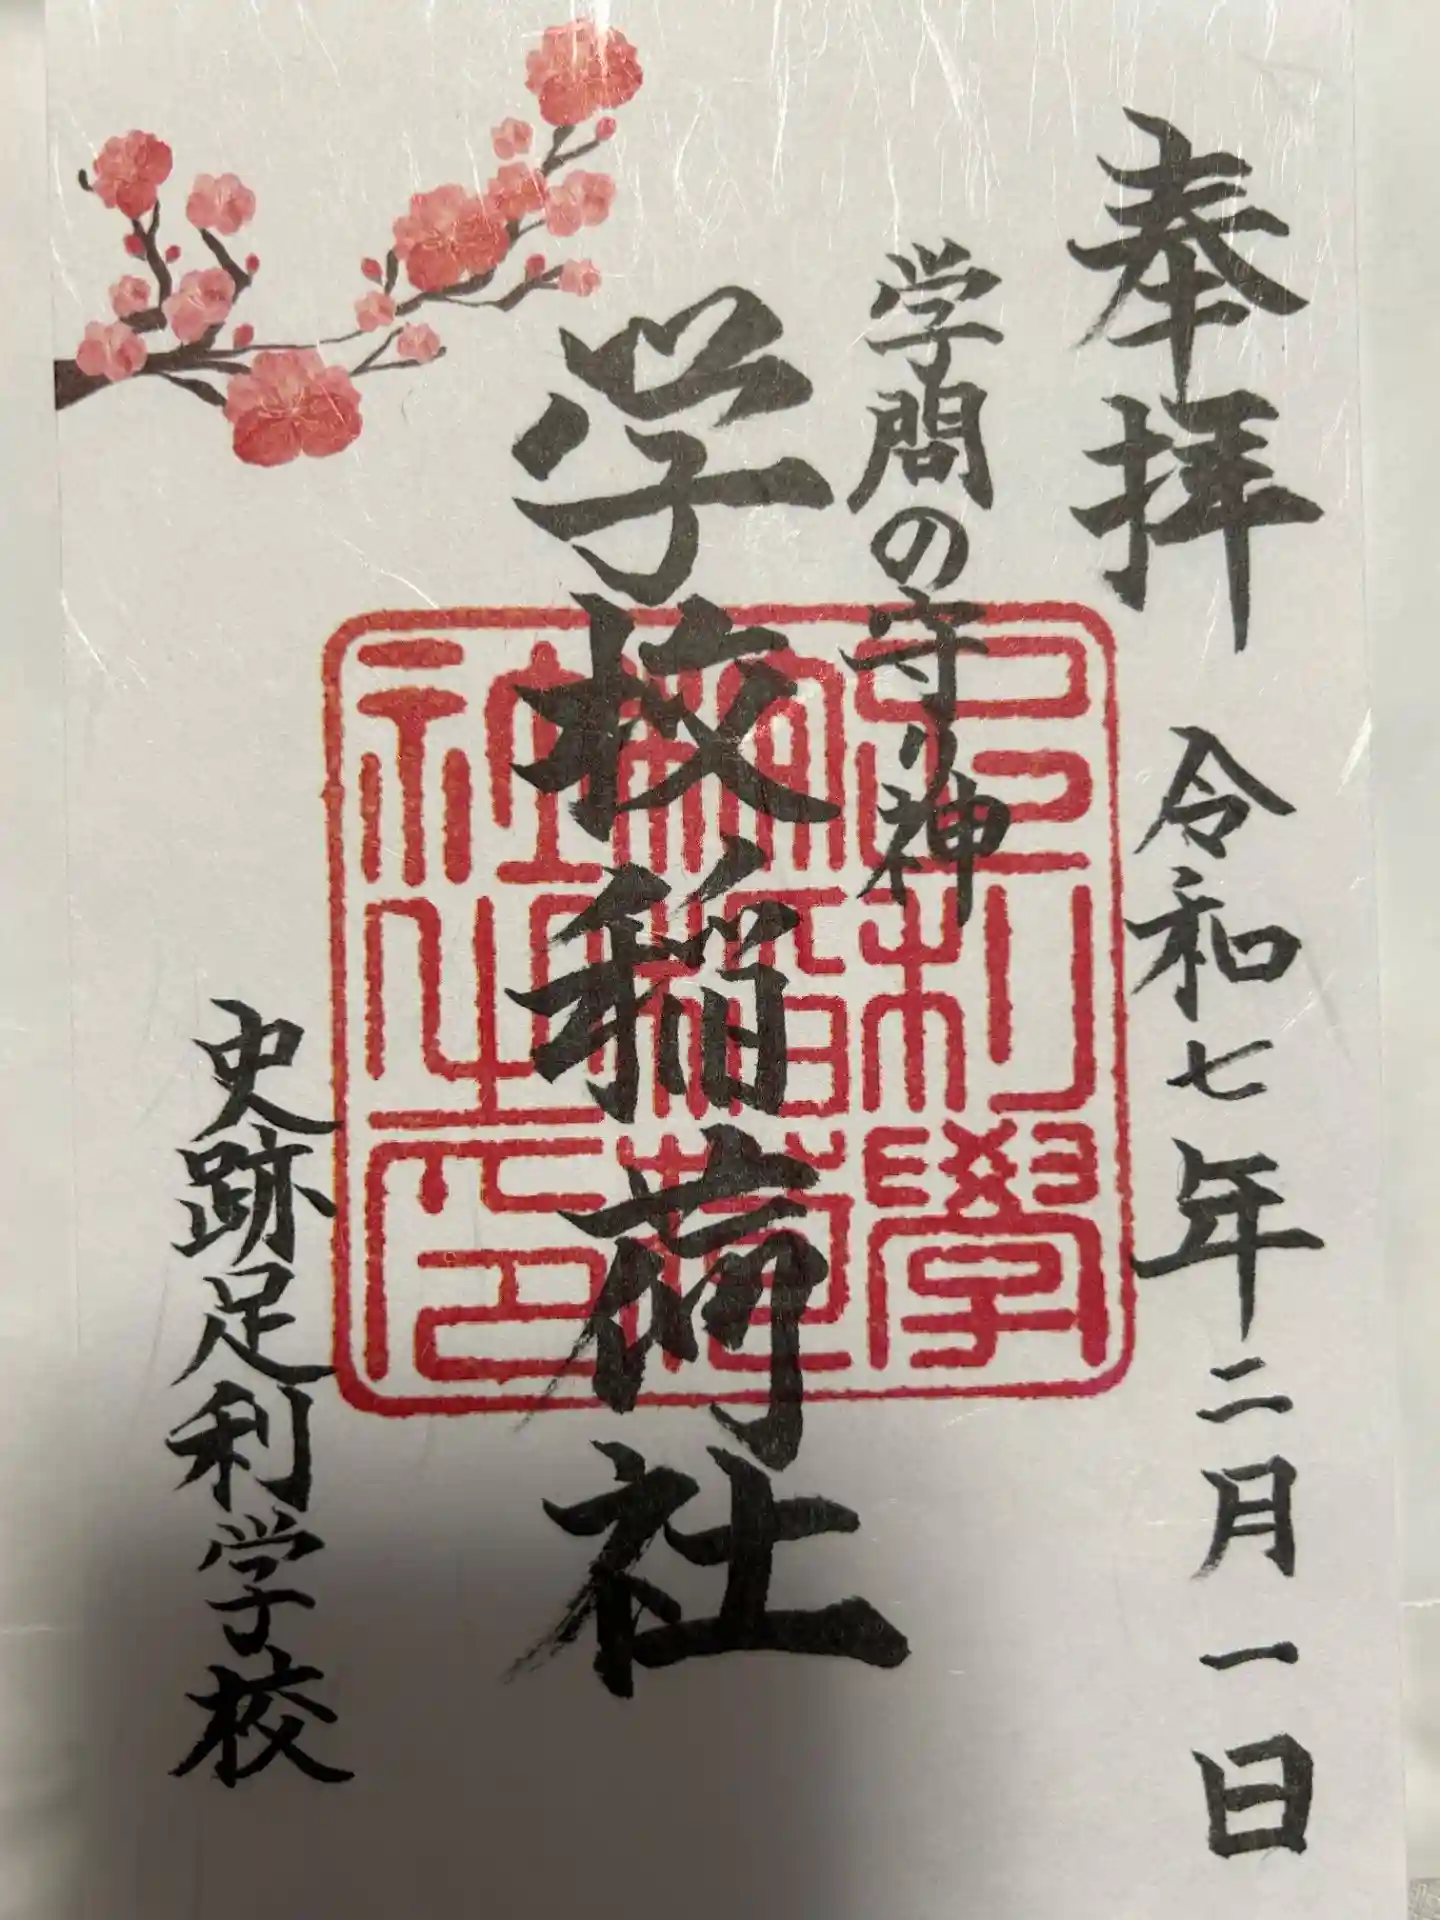 奉拝 令和七年二月一日
学問の守り神
学校稲荷社
足利學
校稲荷
社之印
史跡足利学校